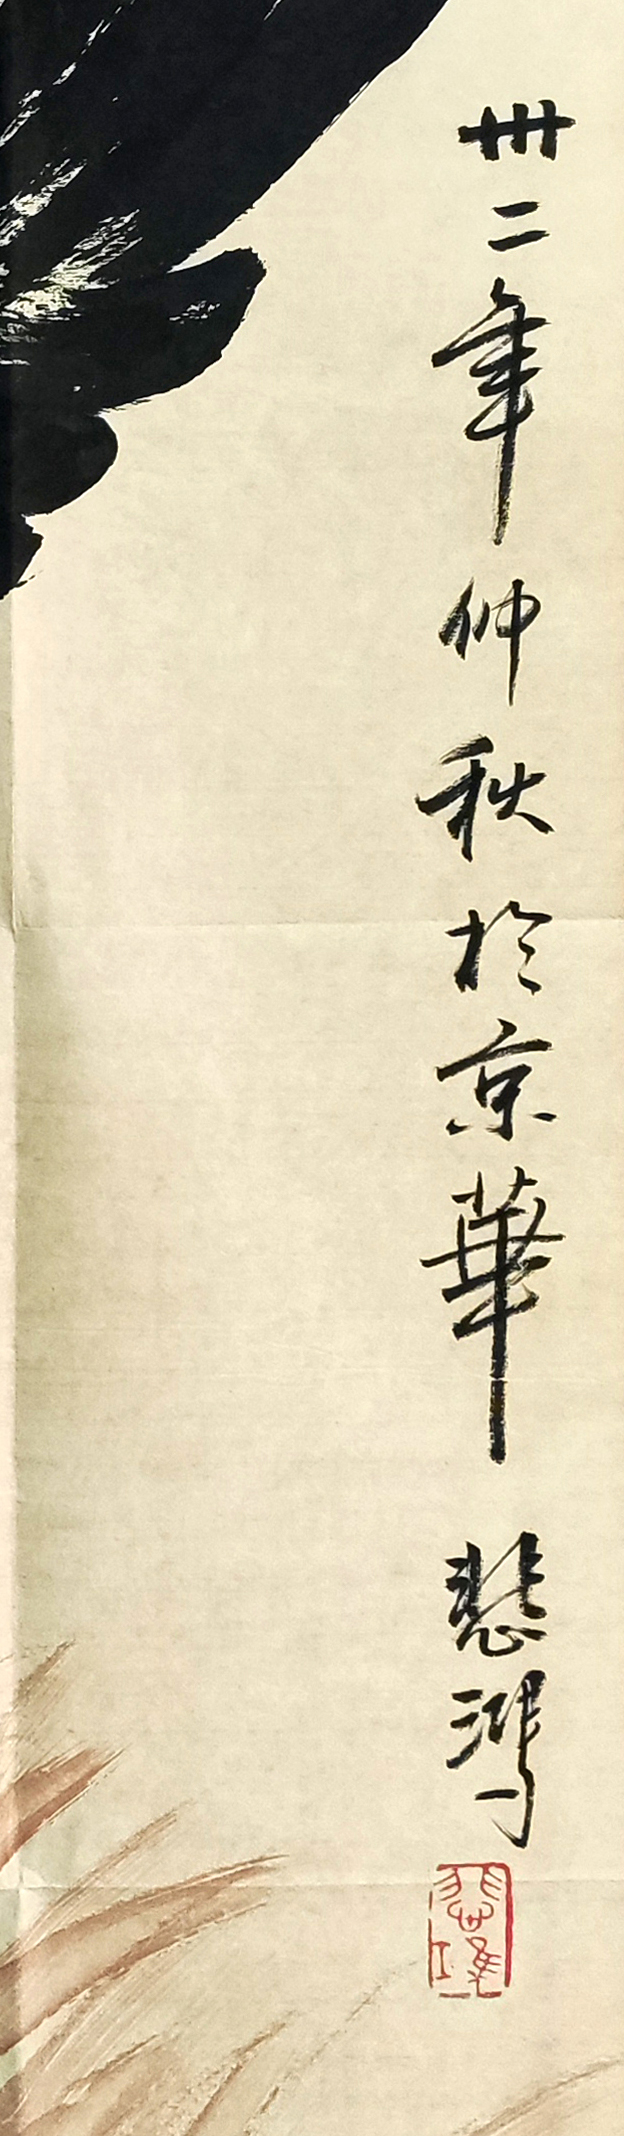 卅二年仲秋於京華 悲鴻
悲鴻